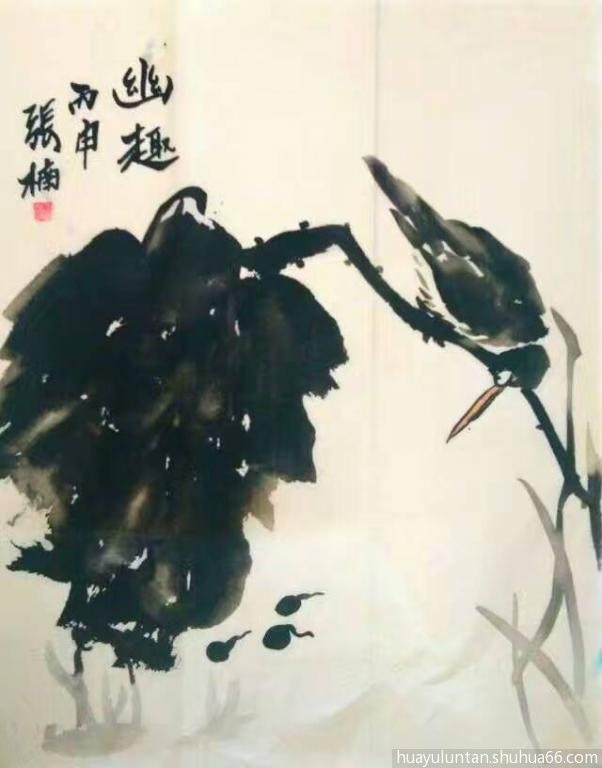 幽趣
丙申
張楠
huayuluntan.shuhua66.com